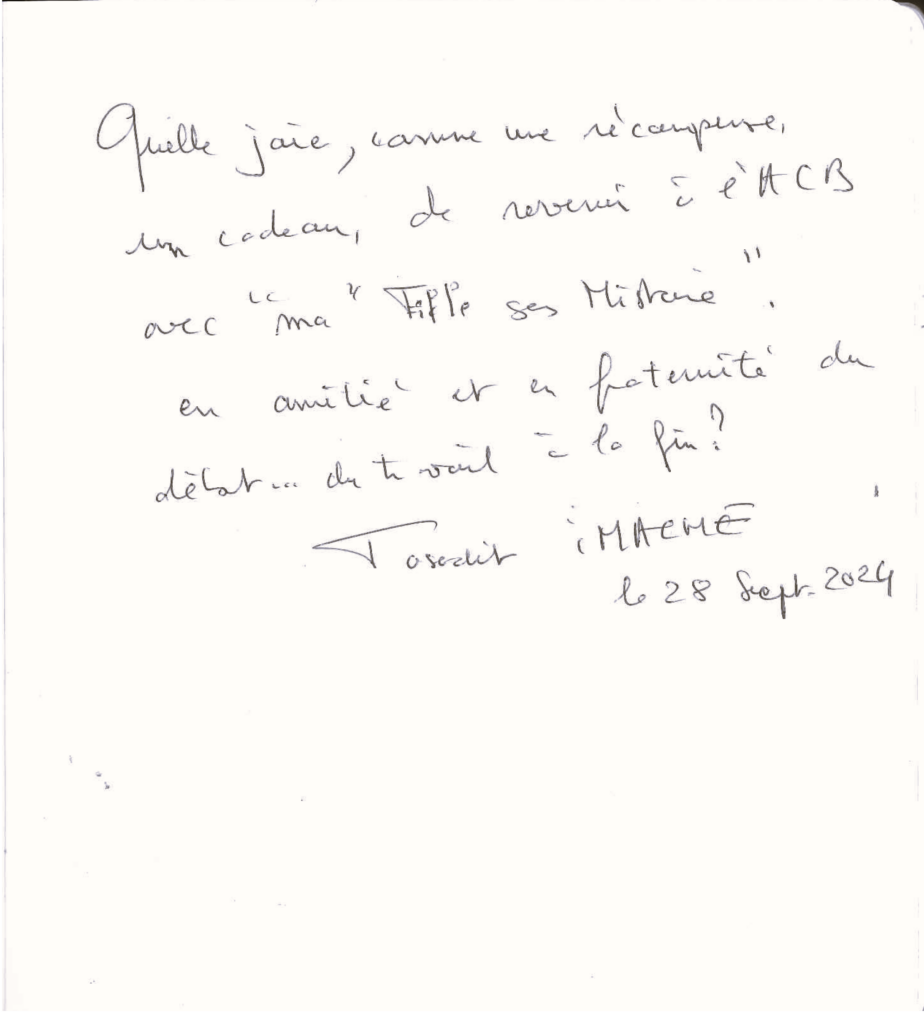 Quelle joie, comme une récompense,
un cadeau, de revenir à l'ACB
avec "ma" Fille sans Histoire".
en amitié et en fraternité du
début... du travail à la fin?
Tassadit iMACHE
le 28 Sept. 2024